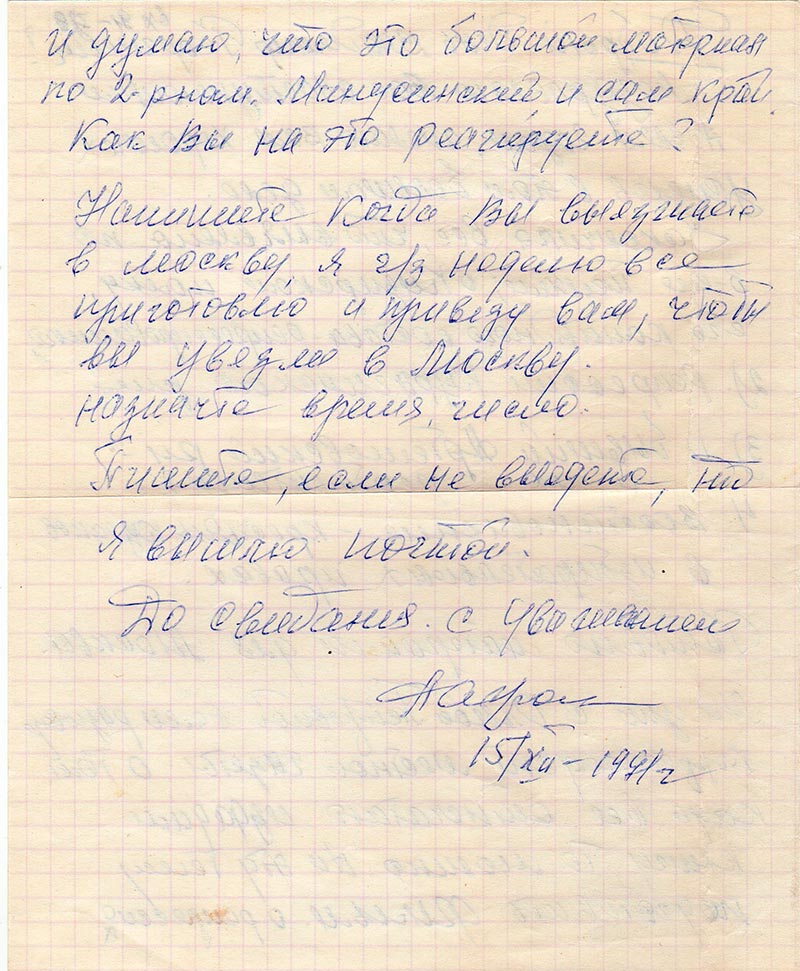 и думаю, что это большой материал
по 2-рном. Минусинский, и сам край.
Как Вы на это реагируете?
Напишите когда Вы выезжаете
в Москву, я ч/з неделю все
приготовлю и привезу вам, чтобы
вы увезли в Москву.
назначте время, число.
Пишите, если не выедете, то
я вышлю почтой.
До свидания. с Уважением
15/XII - 1991г